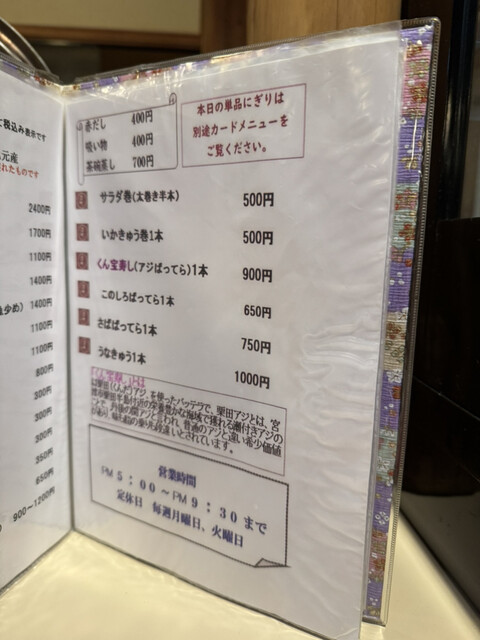 税込み表示です
元産
れたものです
2400円
1700円
1100円
1400円
1400円
1100円
1100円
800円
300円
300円
300円
350円
650円
900～1200円
赤だし 400円
吸い物 400円
茶碗蒸し 700円
本日の単品にぎりは
別途カードメニューを
ご覧ください。
サラダ巻(太巻き半本) 500円
いかきゅう巻1本 500円
くん宝寿し(アジばってら)1本 900円
このしろばってら1本 650円
さばばってら1本 750円
うなきゅう1本 1000円
営業時間
PM5：00～PM9：30まで
定休日 毎週月曜日、火曜日